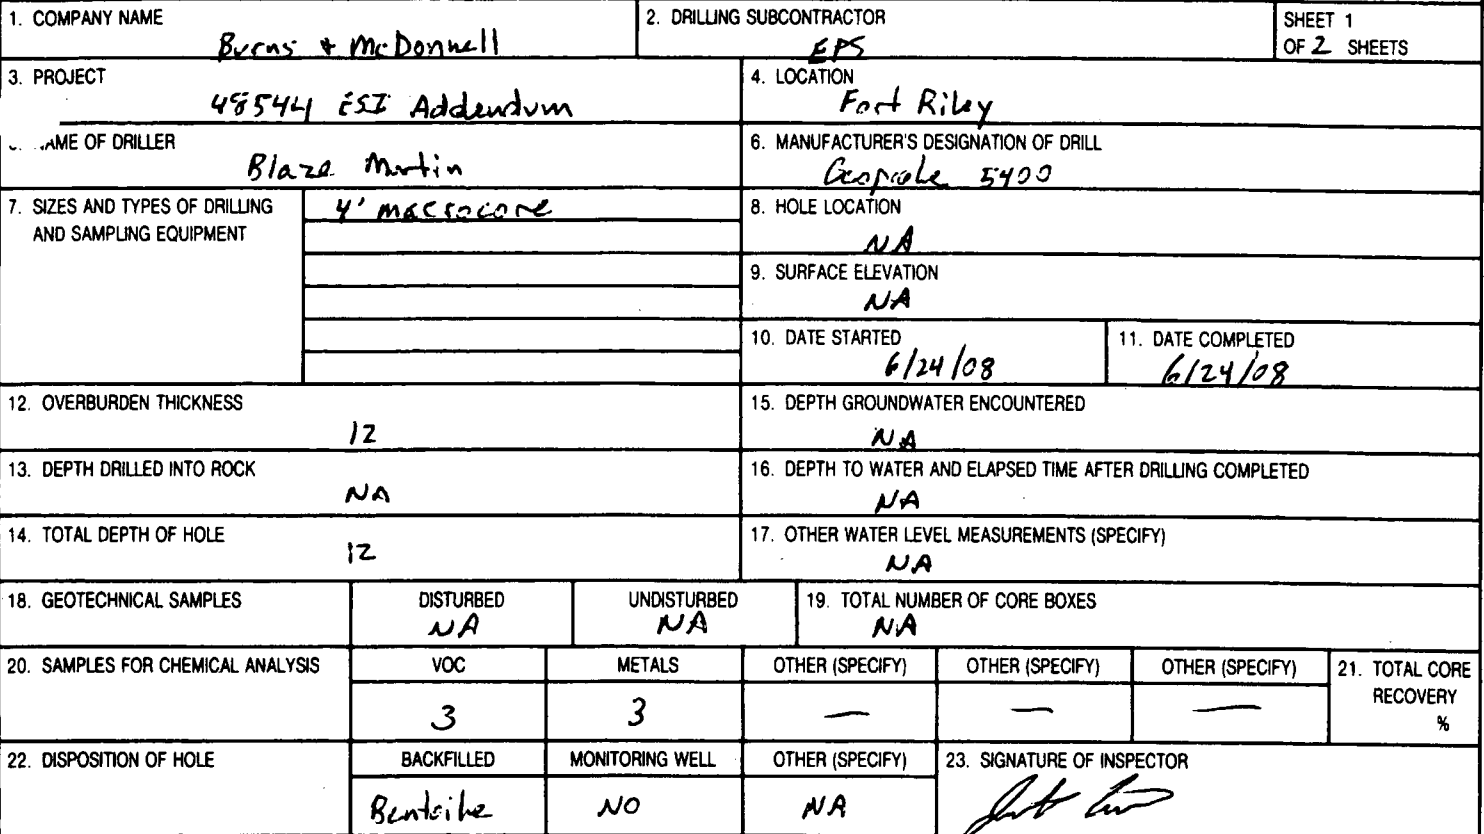 1. COMPANY NAME
Burns + McDonnell
2. DRILLING SUBCONTRACTOR
EPS
SHEET 1
OF 2 SHEETS
3. PROJECT
48544 ESI Addendum
4. LOCATION
Fort Riley
AME OF DRILLER
Blaze Martin
6. MANUFACTURER'S DESIGNATION OF DRILL
Geoprobe 5400
7. SIZES AND TYPES OF DRILLING
AND SAMPLING EQUIPMENT
4' macrocore
8. HOLE LOCATION
NA
9. SURFACE ELEVATION
NA
10. DATE STARTED
6/24/08
11. DATE COMPLETED
6/24/08
12. OVERBURDEN THICKNESS
12
15. DEPTH GROUNDWATER ENCOUNTERED
NA
13. DEPTH DRILLED INTO ROCK
NA
16. DEPTH TO WATER AND ELAPSED TIME AFTER DRILLING COMPLETED
NA
14. TOTAL DEPTH OF HOLE
12
17. OTHER WATER LEVEL MEASUREMENTS (SPECIFY)
NA
18. GEOTECHNICAL SAMPLES
DISTURBED
NA
UNDISTURBED
NA
19. TOTAL NUMBER OF CORE BOXES
NA
20. SAMPLES FOR CHEMICAL ANALYSIS
VOC
3
METALS
3
OTHER (SPECIFY)
—
OTHER (SPECIFY)
—
OTHER (SPECIFY)
—
21. TOTAL CORE
RECOVERY
%
22. DISPOSITION OF HOLE
BACKFILLED
Bentonite
MONITORING WELL
NO
OTHER (SPECIFY)
NA
23. SIGNATURE OF INSPECTOR